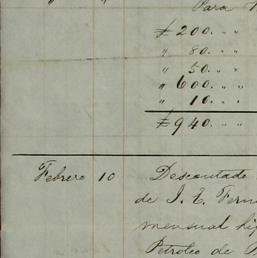 " " Para
£ 200. " "
" 80. " "
" 50. " "
" 600 " "
" 10. " "
£ 940. " "
Febrero 10 Descontado
de J. E. Fern
mensual hip
Petroleo de